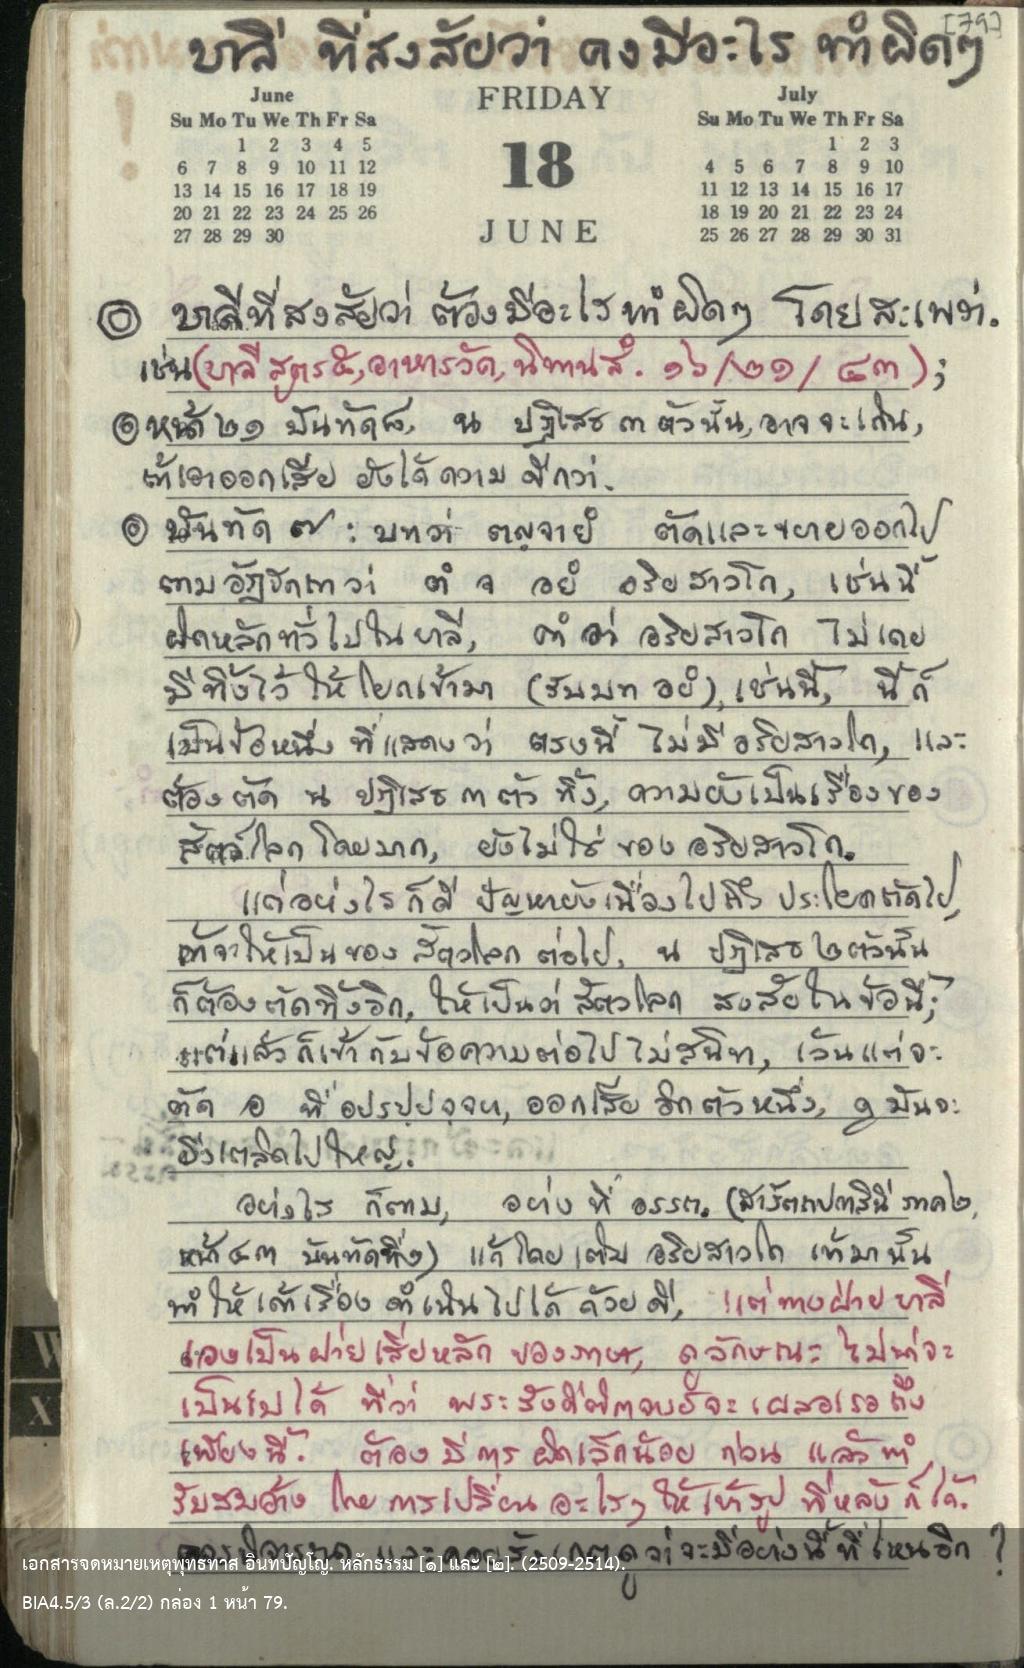 [79]
บาลี ที่สงสัยว่า คงมีอะไร ทำผิดๆ
June
Su Mo Tu We Th Fr Sa
1 2 3 4 5
6 7 8 9 10 11 12
13 14 15 16 17 18 19
20 21 22 23 24 25 26
27 28 29 30
FRIDAY
18
JUNE
July
Su Mo Tu We Th Fr Sa
1 2 3
4 5 6 7 8 9 10
11 12 13 14 15 16 17
18 19 20 21 22 23 24
25 26 27 28 29 30 31
บาลีที่สงสัยว่า ต้องมีอะไรทำผิดๆ โดยสะเพร่า.
เช่น (บาลี สูตร๕, อาหารวัค, นิทานสํ. ๑๖/๒๑/๔๓);
หน้า ๒๑ บันทัด๘, น ปฏิเสธ ๓ ตัวนั้น, อาจจะเกิน,
ถ้าเอาออกเสีย ยังได้ความ ดีกว่า.
บันทัด ๗ : บทว่า ตญฺจายํ ตัดและขยายออกไป
ตามอัฏฐกถาว่า ตํ จ อยํ อริยสาวโก, เช่นนี้
ผิดหลักทั่วไปในบาลี, คำว่า อริยสาวโก ไม่เคย
มีทิ้งไว้ ให้โยกเข้ามา (รับบท อยํ), เช่นนี้, นี้ก็
เป็นข้อหนึ่ง ที่แสดงว่า ตรงนี้ ไม่มี อริยสาวโก, และ
ต้องตัด น ปฏิเสธ ๓ ตัว ทิ้ง, ความยังเป็นเรื่องของ
สัตว์โลก โดยมาก, ยังไม่ใช่ ของ อริยสาวโก.
แต่อย่างไรก็ดี ปัญหายังเนื่องไปถึง ประโยคถัดไป,
ถ้าจะให้เป็นของ สัตวโลก ต่อไป, น ปฏิเสธ ๒ ตัวนั้น
ก็ต้องตัดทิ้งอีก, ให้เป็นว่า สัตวโลก สงสัยในข้อนี้;
แต่แล้วก็เข้ากับข้อความต่อไปไม่สนิท, เว้นแต่จะ
ตัด อ ที่ อปรปฺปจฺจยา, ออกเสีย อีกตัวหนึ่ง, ๑ มันจะ
ยิ่งเตลิดไปใหญ่.
อย่างไร ก็ตาม, อย่าง ที่ อรรถ. (สารัตถปกาสินี ภาค๒,
หน้า ๔๓ บันทัดที่๑) แก้โดยเติม อริยสาวโก เข้ามานั้น
ทำให้เค้าเรื่อง ดำเนินไปได้ ด้วยดี, แต่ทางฝ่าย บาลี
เองเป็นฝ่ายเสียหลัก ของภาษา, ดูลักษณะ ไม่น่าจะ
เป็นไปได้ ที่ว่า พระสังคีติกาจารย์จะ เผลอเรอ ถึง
เพียงนี้. ต้องมีการ ผิดเล็กน้อย ก่อน แล้วทำ
รับสมอ้าง โดยการเปลี่ยน อะไรๆ ให้เข้ารูป ทีหลังก็ได้.
และคอยสังเกตดูว่าจะมีอย่างนี้ที่ไหนอีก ?
เอกสารจดหมายเหตุพุทธทาส อินทปัญโญ. หลักธรรม [๑] และ [๒]. (2509-2514).
BIA4.5/3 (ล.2/2) กล่อง 1 หน้า 79.